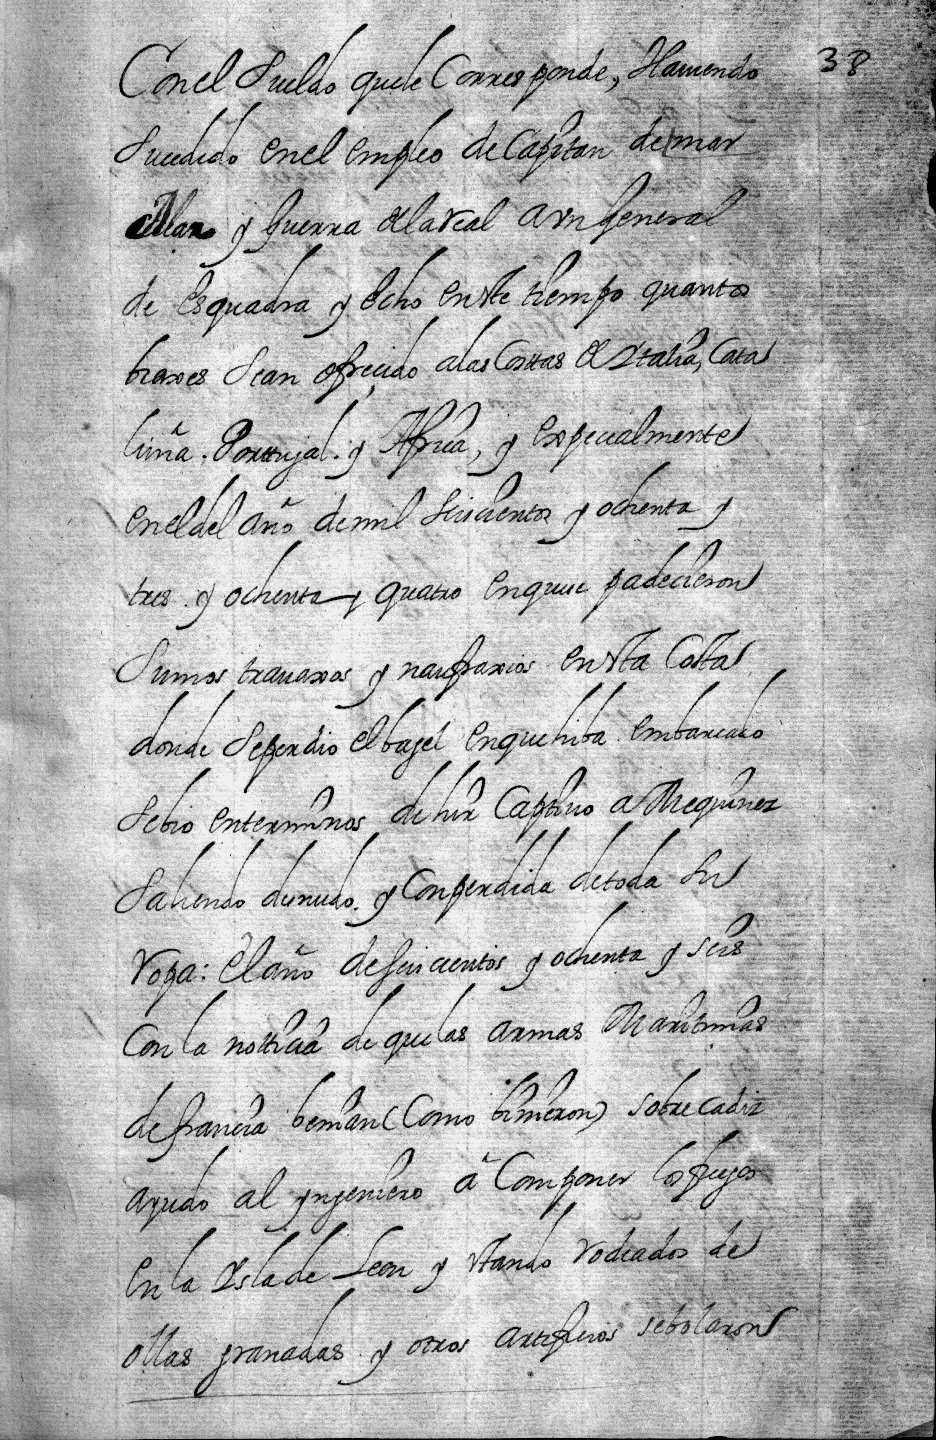 Con el Sueldo quele Corresponde, Hauiendo 38
Sucedido en el empleo de Capitan de mar
y Guerra de la Real a Un General
de esquadra y echo en este tiempo quantos
biaxes Sean ofrecido alas Costas de Ytalia, Cata
luña, Portugal y Africa, y expecialmente
en el del año de mil Seiscientos y ochenta y
tres y ochenta y quatro en que padecieron
Sumos trauaxos y naufraxios en esta Costa
donde Seperdio el bajel en que hiba embarcado
Sebio enterminos de hir Captiuo a Mequinez
Saliendo desnudo y Con perdida de toda Su
ropa: el año de Seiscientos y ochenta y seis
Con la notticia de que las armas Maritimas
de francia benian (Como binieron) sobre Cadiz
ayudo al yngeniero a Componer los fuegos
en la Ysla de Leon y estando rodeados de
ollas granadas y otros artificios sebolaron